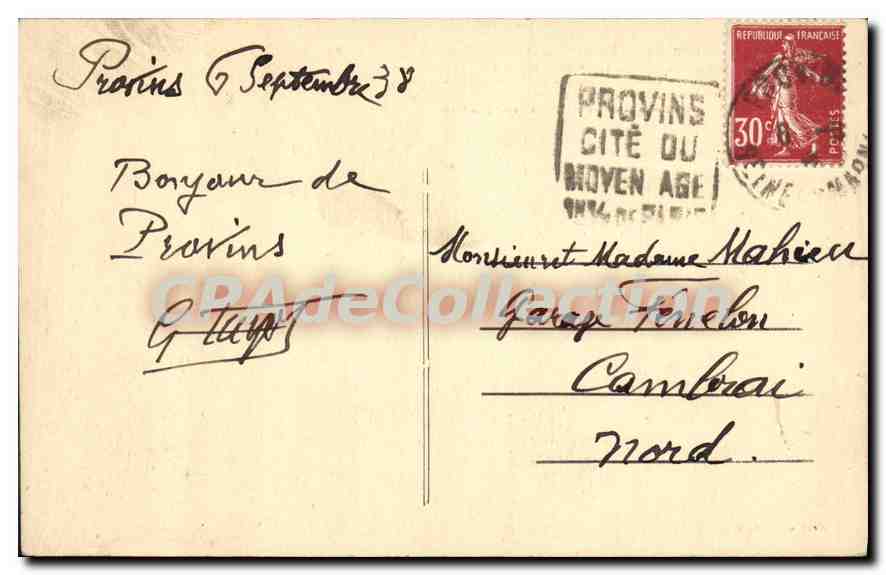 Provins 6 Septembre 38
Bonjour de
Provins
REPUBLIQUE FRANÇAISE
30c
POSTES
PROVINS
CITÉ DU
MOYEN AGE
Monsieur et Madame Mahieu
Garage Fénelon
Cambrai
Nord.
CPAdeCollection